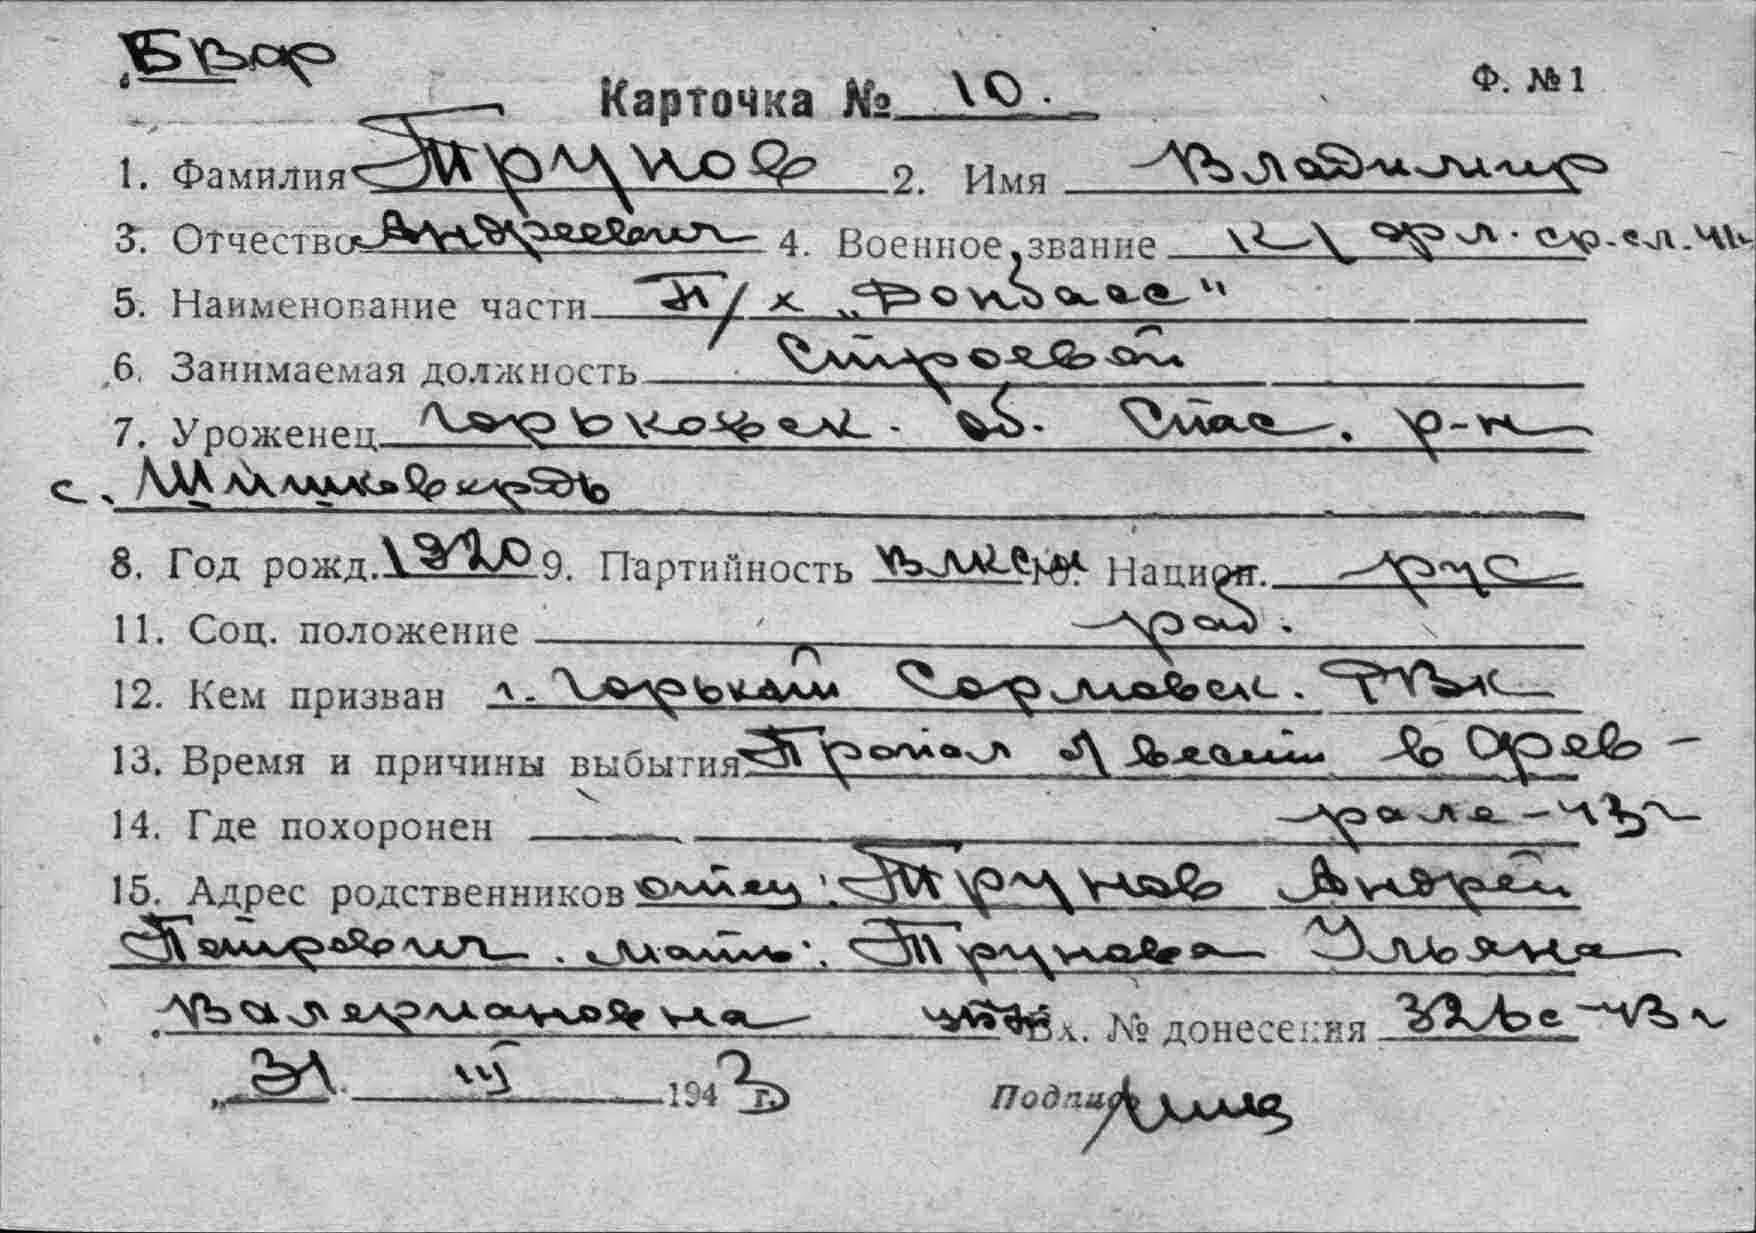 БВор
Карточка № 10. Ф. № 1
1. Фамилия Трунов 2. Имя Владимир
3. Отчество Андреевич 4. Военное звание к/фл. ср.сл.
5. Наименование части П/х „Донбасс"
6. Занимаемая должность Строевой
7. Уроженец Горьковск. об. Спас. р-н
с. Шишковердь
8. Год рожд. 1920 9. Партийность ВЛКСМ 10. Национ. рус
11. Соц. положение раб.
12. Кем призван г. Горький Сормовск. РВК
13. Время и причины выбытия Пропал б/вести в фев-
14. Где похоронен рале-43г
15. Адрес родственников отец: Трунов Андрей
Петрович. мать: Трунова Ульяна
Валериановна Вх. № донесения 326с-43г
„31" III 1943 г. Подпись